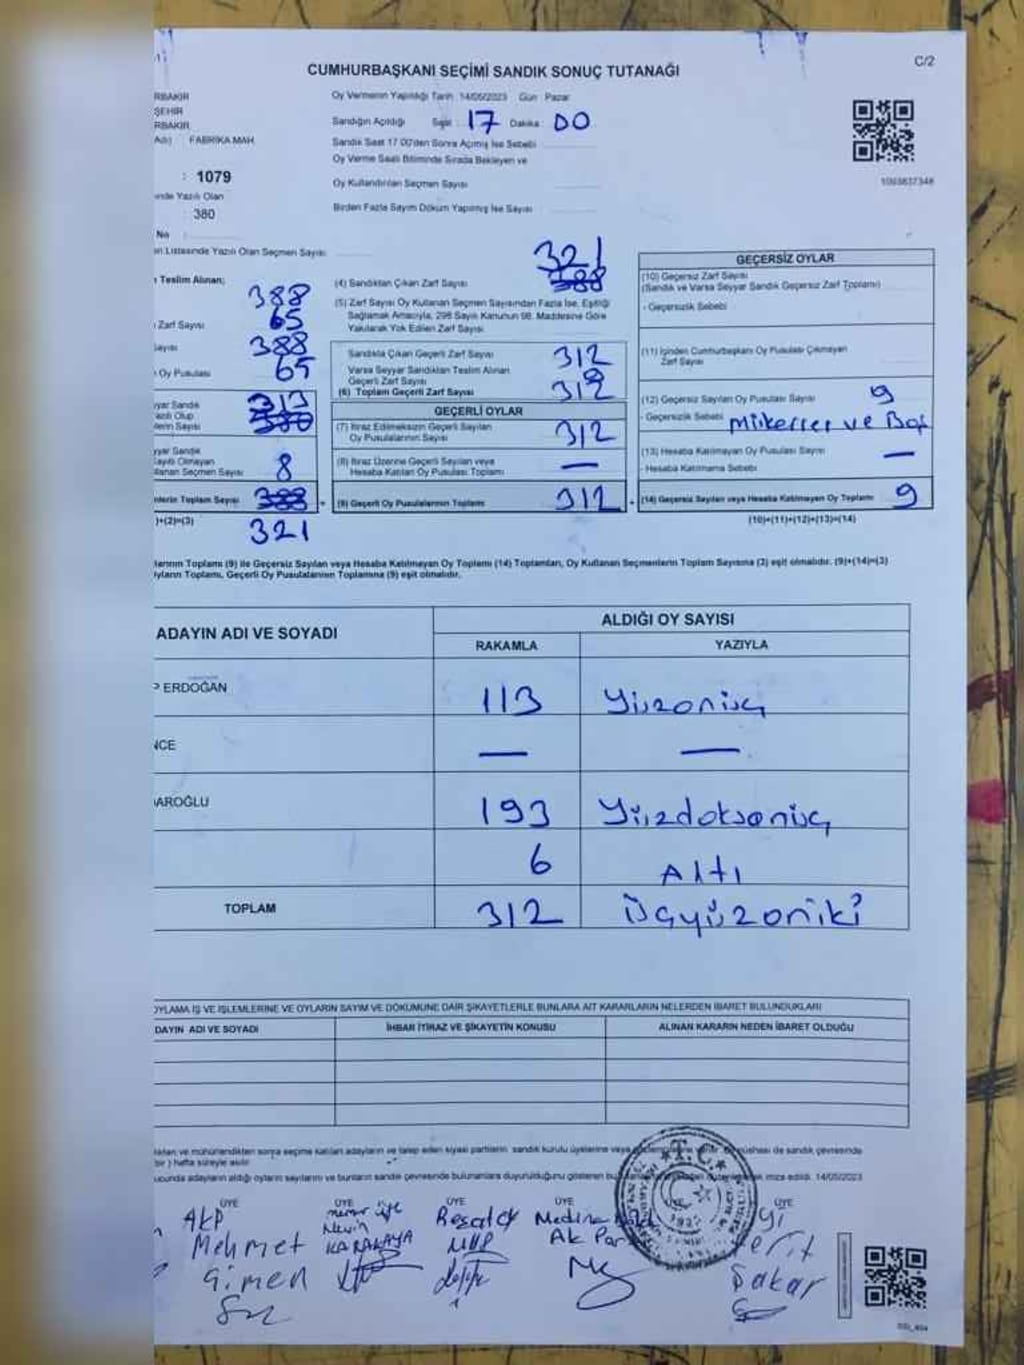 C/2
CUMHURBAŞKANI SEÇİMİ SANDIK SONUÇ TUTANAĞI
RBAKIR
ŞEHİR
RBAKIR
Adı) FABRİKA MAH
: 1079
inde Yazılı Olan
: 380
No :
Oy Vermenin Yapıldığı Tarih: 14/05/2023 Gün: Pazar
Sandığın Açıldığı Saat : 17 Dakika : 00
Sandık Saat 17.00'den Sonra Açılmış İse Sebebi
Oy Verme Saati Bitiminde Sırada Bekleyen ve
Oy Kullandırılan Seçmen Sayısı
Birden Fazla Sayım Döküm Yapılmış İse Sayısı
1003637348
Listesinde Yazılı Olan Seçmen Sayısı
Teslim Alınan;
388
65
Zarf Sayısı
388
Sayısı
65
Oy Pusulası
yyar Sandık
azılı Olup
lerin Sayısı
313
380
yyar Sandık
ayıtlı Olmayan
anan Seçmen Sayısı
8
nlerin Toplam Sayısı
388
)+(2)=(3)
321
321
388
(4) Sandıktan Çıkan Zarf Sayısı
(5) Zarf Sayısı Oy Kullanan Seçmen Sayısından Fazla İse, Eşitliği
Sağlamak Amacıyla, 298 Sayılı Kanunun 98. Maddesine Göre
Yakılarak Yok Edilen Zarf Sayısı
Sandıkta Çıkan Geçerli Zarf Sayısı 312
Varsa Seyyar Sandıktan Teslim Alınan
Geçerli Zarf Sayısı
(6) Toplam Geçerli Zarf Sayısı 312
GEÇERLİ OYLAR
(7) İtiraz Edilmeksizin Geçerli Sayılan
Oy Pusulalarının Sayısı 312
(8) İtiraz Üzerine Geçerli Sayılan veya
Hesaba Katılan Oy Pusulası Toplamı —
(9) Geçerli Oy Pusulalarının Toplamı 312
GEÇERSİZ OYLAR
(10) Geçersiz Zarf Sayısı
(Sandık ve Varsa Seyyar Sandık Geçersiz Zarf Toplamı)
- Geçersizlik Sebebi
(11) İçinden Cumhurbaşkanı Oy Pusulası Çıkmayan
Zarf Sayısı
(12) Geçersiz Sayılan Oy Pusulası Sayısı 9
- Geçersizlik Sebebi Mükerrer ve Boş
(13) Hesaba Katılmayan Oy Pusulası Sayısı —
- Hesaba Katılmama Sebebi
(14) Geçersiz Sayılan veya Hesaba Katılmayan Oy Toplamı 9
(10)+(11)+(12)+(13)=(14)
larının Toplamı (9) ile Geçersiz Sayılan veya Hesaba Katılmayan Oy Toplamı (14) Toplamları, Oy Kullanan Seçmenlerin Toplam Sayısına (3) eşit olmalıdır. (9)+(14)=(3)
oyların Toplamı, Geçerli Oy Pusulalarının Toplamına (9) eşit olmalıdır.
ADAYIN ADI VE SOYADI
ALDIĞI OY SAYISI
RAKAMLA YAZIYLA
P ERDOĞAN 113 Yüzonüç
NCE — —
DAROĞLU 193 Yüzdoksanüç
6 Altı
TOPLAM 312 Üçyüzoniki
OYLAMA İŞ VE İŞLEMLERİNE VE OYLARIN SAYIM VE DÖKÜMÜNE DAİR ŞİKAYETLERLE BUNLARA AİT KARARLARIN NELERDEN İBARET BULUNDUKLARI
DAYIN ADI VE SOYADI İHBAR İTİRAZ VE ŞİKAYETİN KONUSU ALINAN KARARIN NEDEN İBARET OLDUĞU
ve mühürlendikten sonra seçime katılan adayların ve talep eden siyasi partilerin sandık kurulu üyelerine veya
bir ) hafta süreyle asılır.
ucunda adayların aldığı oyların sayılarını ve bunların sandık çevresinde bulunanlara duyurulduğunu gösteren imza edildi. 14/05/2023
ÜYE ÜYE ÜYE ÜYE ÜYE
AKP
Mehmet
Gimen
memur üye
Nevin
KARAKAYA
Resat
MHP
Medine
Ak Par
T.C.
iyi
Ferit
Sakar